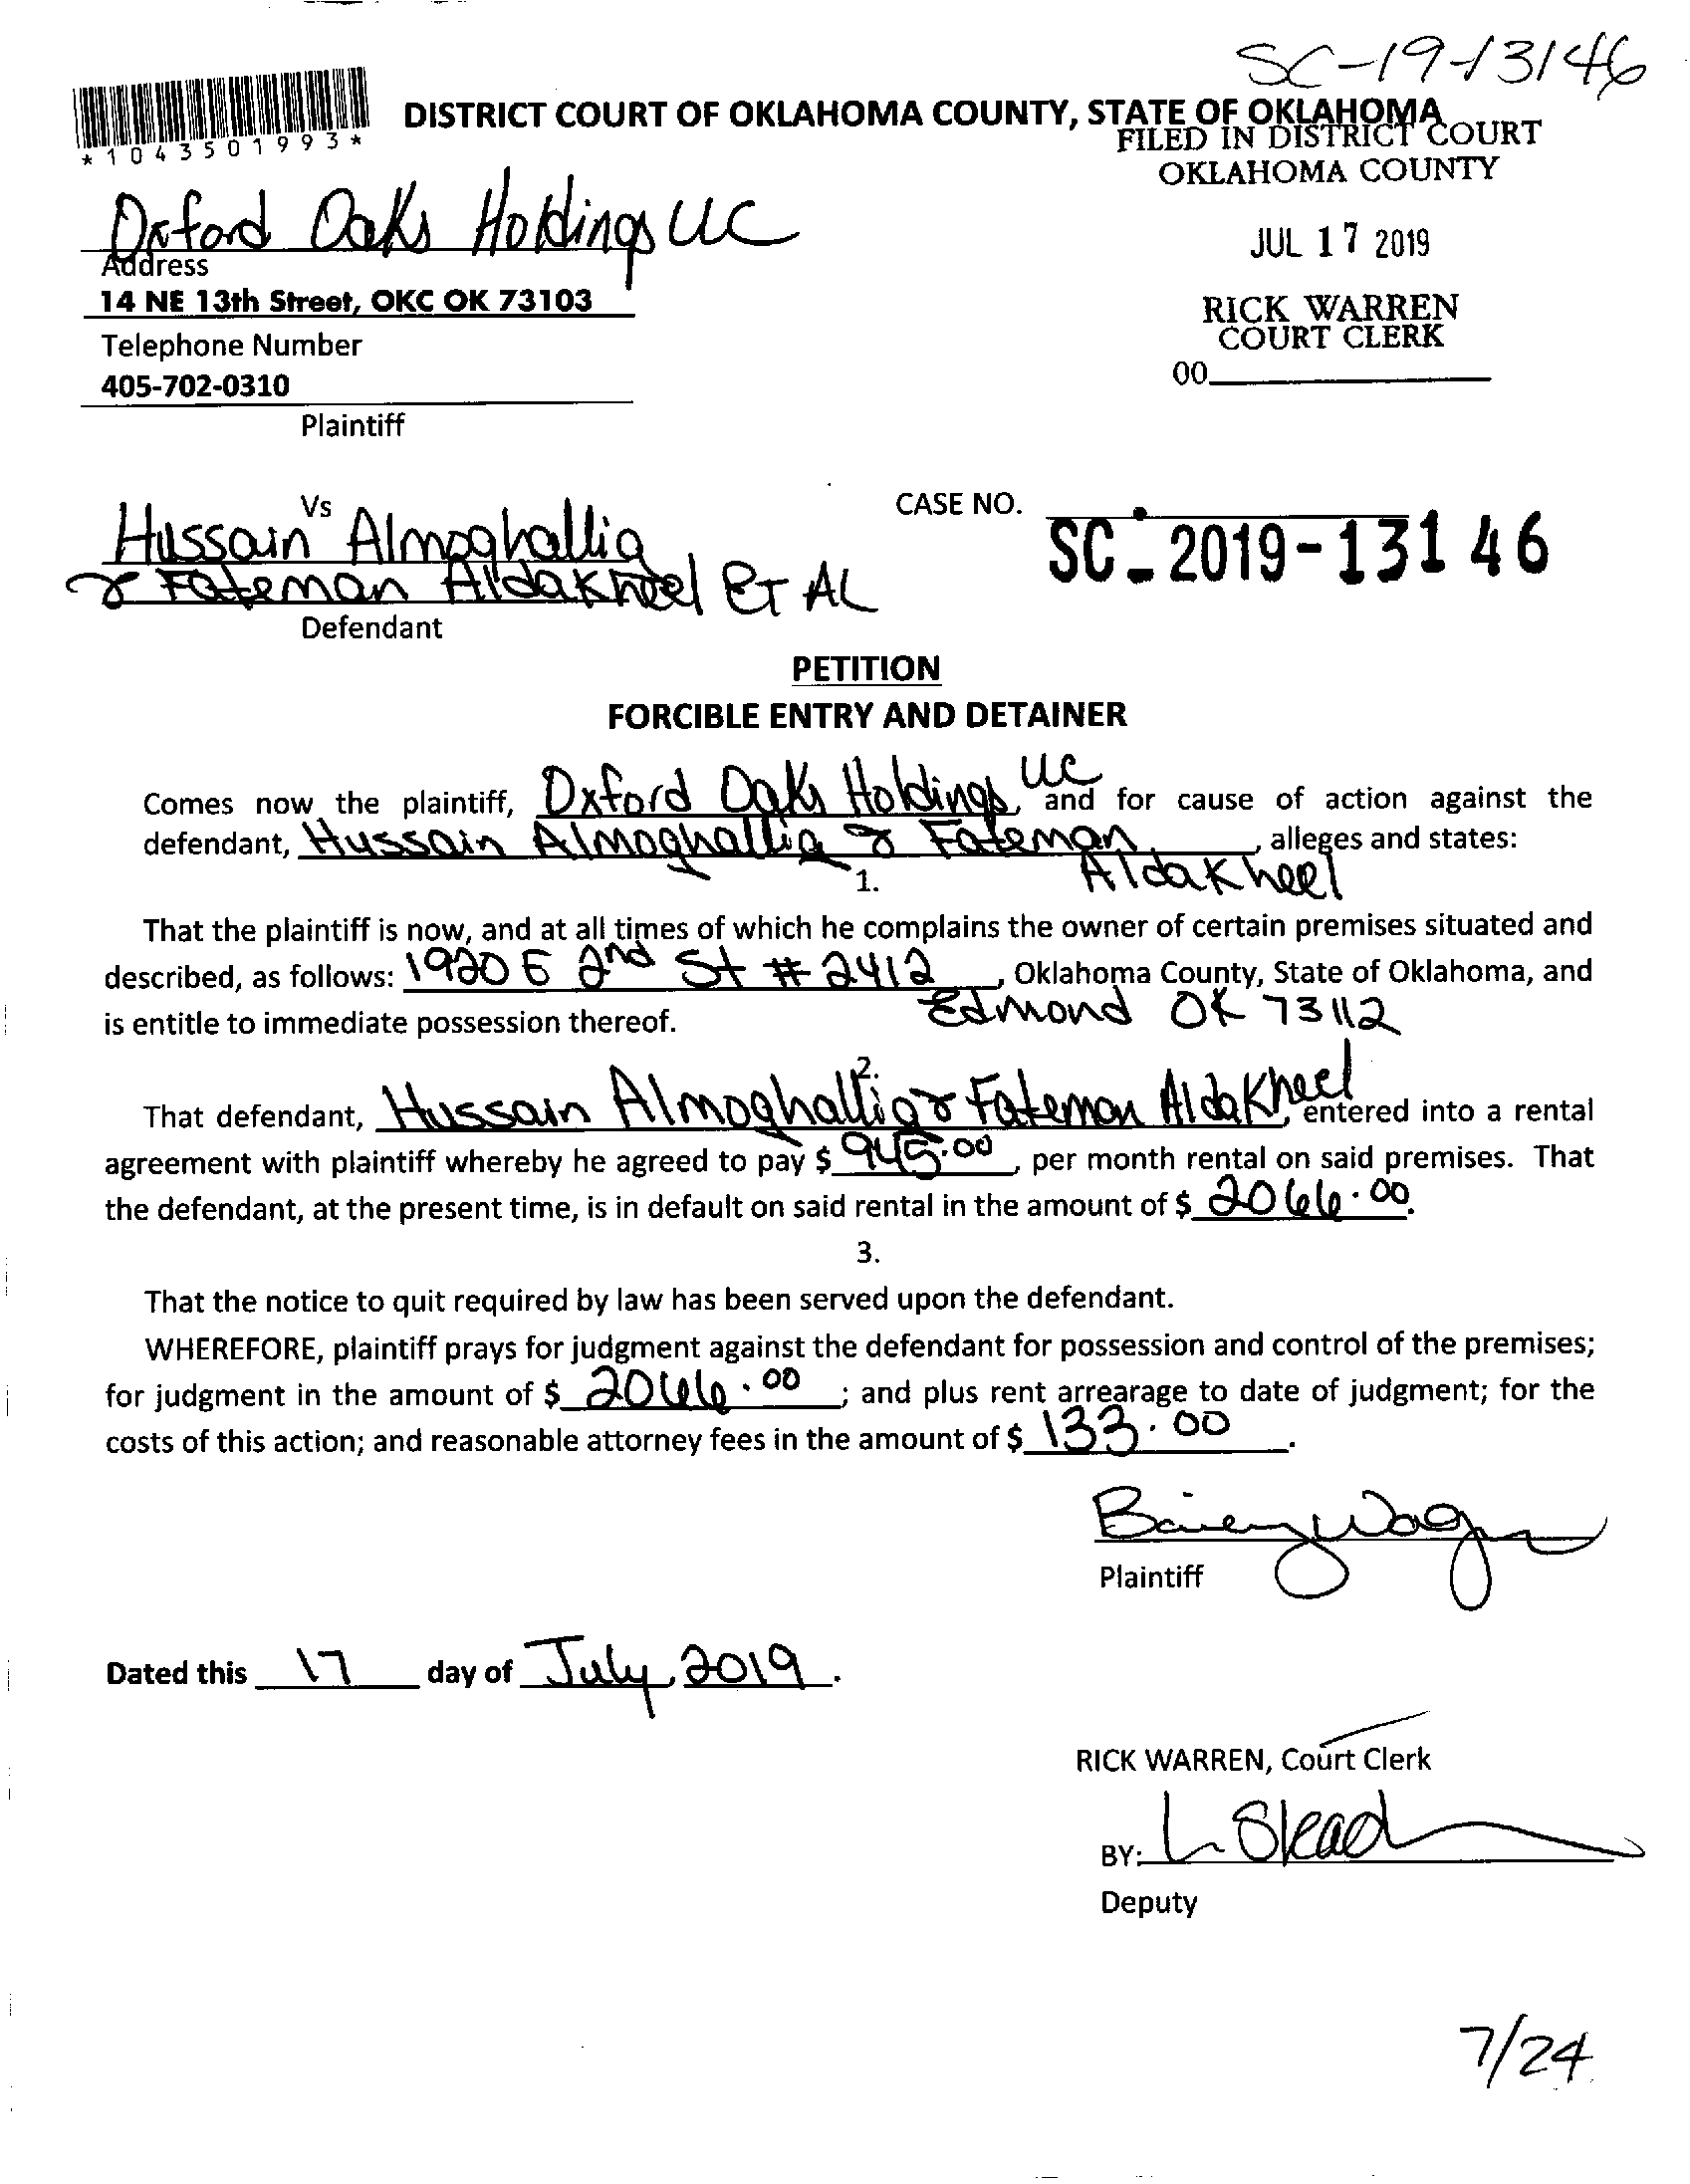 SC-19-13146
*1043501993*
DISTRICT COURT OF OKLAHOMA COUNTY, STATE OF OKLAHOMA
FILED IN DISTRICT COURT
OKLAHOMA COUNTY
Oxford Oaks Holdings LLC
JUL 17 2019
Address
14 NE 13th Street, OKC OK 73103
RICK WARREN
COURT CLERK
Telephone Number
00
405-702-0310
Plaintiff
Vs
CASE NO.
SC-2019-13146
Hussain Almoghallig
& Fateman Aldakheel ET AL
Defendant
PETITION
FORCIBLE ENTRY AND DETAINER
Comes now the plaintiff, Oxford Oaks Holdings, LLC and for cause of action against the
defendant, Hussain Almoghallig & Fateman Aldakheel, alleges and states:
1.
That the plaintiff is now, and at all times of which he complains the owner of certain premises situated and
described, as follows: 1920 E 2nd St # 2412, Oklahoma County, State of Oklahoma, and
Edmond OK 73112
is entitle to immediate possession thereof.
2.
That defendant, Hussain Almoghallig & Fateman Aldakheel, entered into a rental
agreement with plaintiff whereby he agreed to pay $ 945.00, per month rental on said premises. That
the defendant, at the present time, is in default on said rental in the amount of $ 2066.00.
3.
That the notice to quit required by law has been served upon the defendant.
WHEREFORE, plaintiff prays for judgment against the defendant for possession and control of the premises;
for judgment in the amount of $ 2066.00; and plus rent arrearage to date of judgment; for the
costs of this action; and reasonable attorney fees in the amount of $ 133.00.
Plaintiff
Dated this 17 day of July, 2019.
RICK WARREN, Court Clerk
BY:
Deputy
7/24